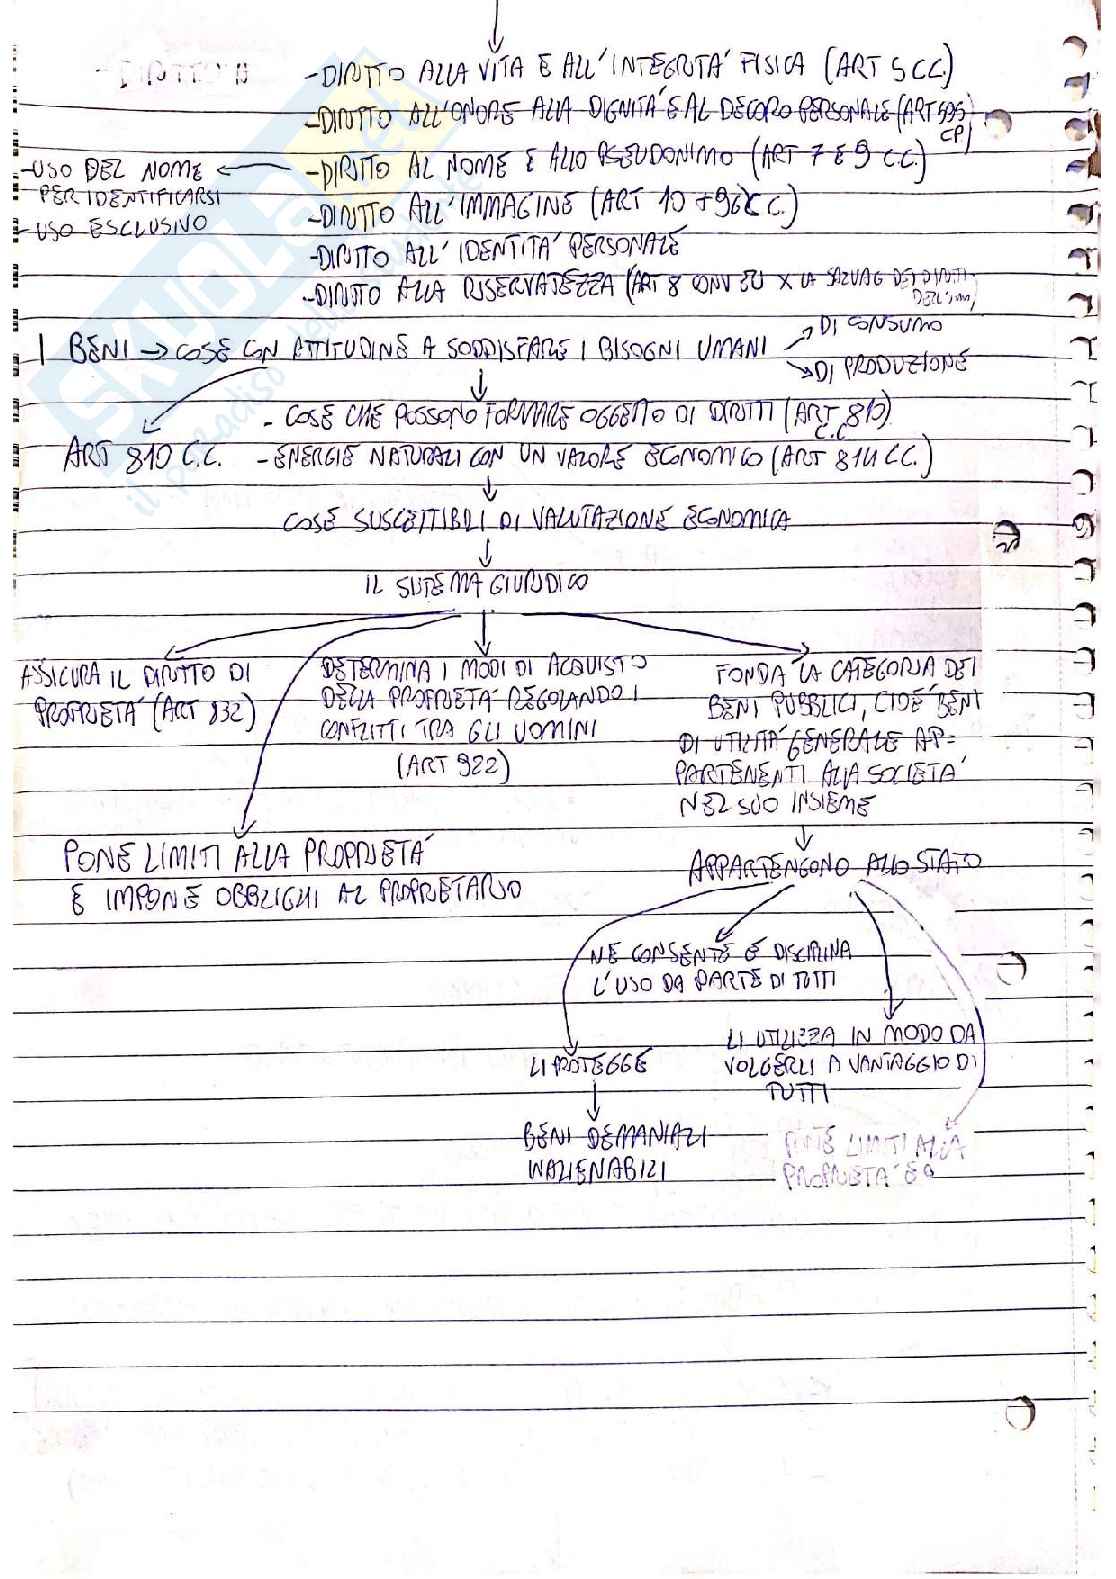 - DIRITTO ALLA VITA E ALL'INTEGRITÀ FISICA (ART 5 C.C.)
- DIRITTO ALL'ONORE ALLA DIGNITÀ E AL DECORO PERSONALE (ART 595 CP)
- USO DEL NOME PER IDENTIFICARSI
- USO ESCLUSIVO
- DIRITTO AL NOME E ALLO PSEUDONIMO (ART 7 E 9 C.C.)
- DIRITTO ALL'IMMAGINE (ART 10 + 96 C.C.)
- DIRITTO ALL'IDENTITÀ PERSONALE
- DIRITTO ALLA RISERVATEZZA (ART 8 CONV EU X LA SALVAG DEI DIRITTI DELL'UMO)
I BENI → COSE CON ATTITUDINE A SODDISFARE I BISOGNI UMANI
DI CONSUMO
DI PRODUZIONE
- COSE CHE POSSONO FORMARE OGGETTO DI DIRITTI (ART 810 C.C.
ART 810 C.C.
- ENERGIE NATURALI CON UN VALORE ECONOMICO (ART 814 C.C.)
COSE SUSCETTIBILI DI VALUTAZIONE ECONOMICA
IL SISTEMA GIURIDICO
ASSICURA IL DIRITTO DI
PROPRIETÀ (ART 832)
DETERMINA I MODI DI ACQUISTO
DELLA PROPRIETÀ REGOLANDO I
CONFLITTI TRA GLI UOMINI
(ART 922)
FONDA LA CATEGORIA DEI
BENI PUBBLICI, CIOÈ BENI
DI UTILITÀ GENERALE AP=
PARTENENTI ALLA SOCIETÀ
NEL SUO INSIEME
PONE LIMITI ALLA PROPRIETÀ
E IMPONE OBBLIGHI AL PROPRIETARIO
APPARTENGONO ALLO STATO
NE CONSENTE E DISCIPLINA
L'USO DA PARTE DI TUTTI
LI PROTEGGE
LI UTILIZZA IN MODO DA
VOLGERLI A VANTAGGIO DI
TUTTI
BENI DEMANIALI
INALIENABILI
PONE LIMITI ALLA
PROPRIETÀ E
SKUOLA.net
il paradiso dello studente